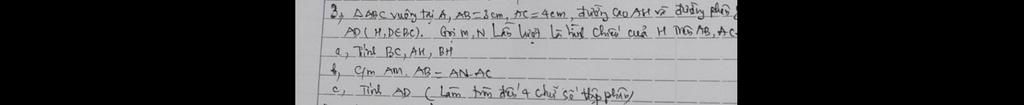 3, △ABC vuông tại A, AB=3cm, AC=4cm, đường cao AH và đường phân
AD (H,D∈BC). Gọi M,N lần lượt là hình chiếu của H trên AB, AC.
a, Tính BC, AH, BH
b, C/m AM. AB = AN.AC
c, Tính AD (Làm tròn đến 4 chữ số thập phân)